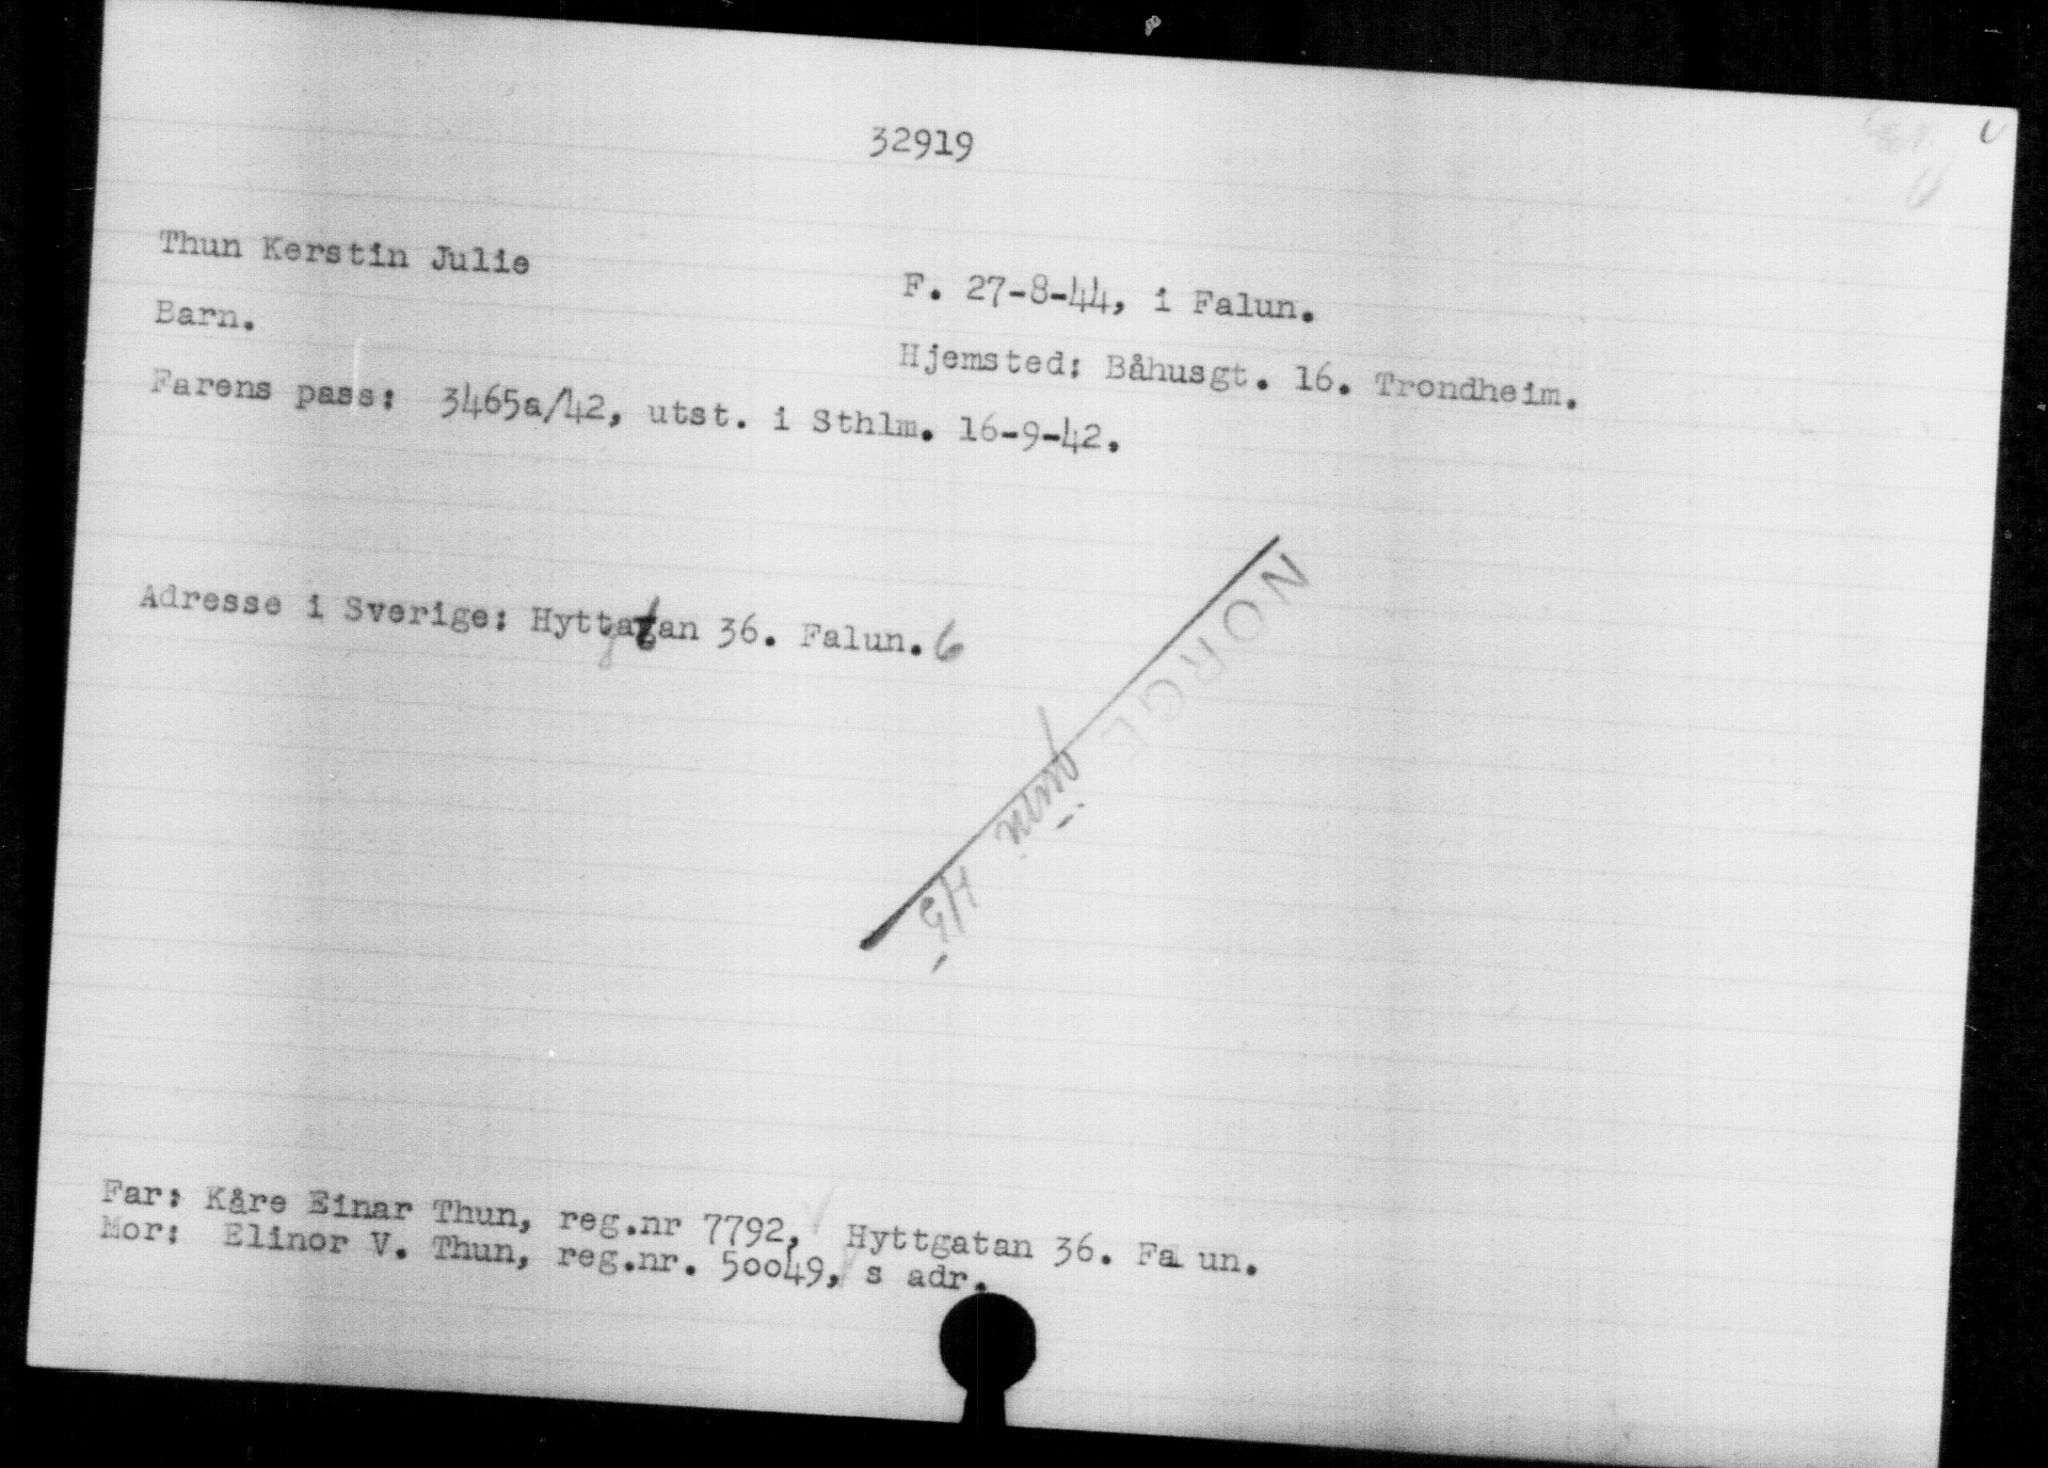 32919
Thun Kerstin Julie
F. 27-8-44, i Falun.
Barn.
Hjemsted: Båhusgt. 16. Trondheim.
Farens pass: 3465a/42, utst. i Sthlm. 16-9-42.
Adresse i Sverige: Hyttgatan 36. Falun. 6
NORGE
juni 45
Far: Kåre Einar Thun, reg.nr 7792, Hyttgatan 36. Fa un.
Mor: Elinor V. Thun, reg.nr. 50049, s adr.